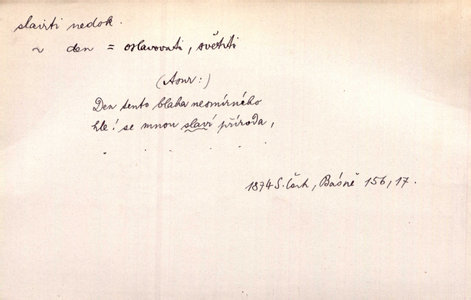 slaviti nedok.
~ den = oslavovati, světiti
(Aour:)
Den tento blaha neomírného
hle! se mnou slaví příroda,
. . . . .
1874 S. Čech, Básně 156, 17.